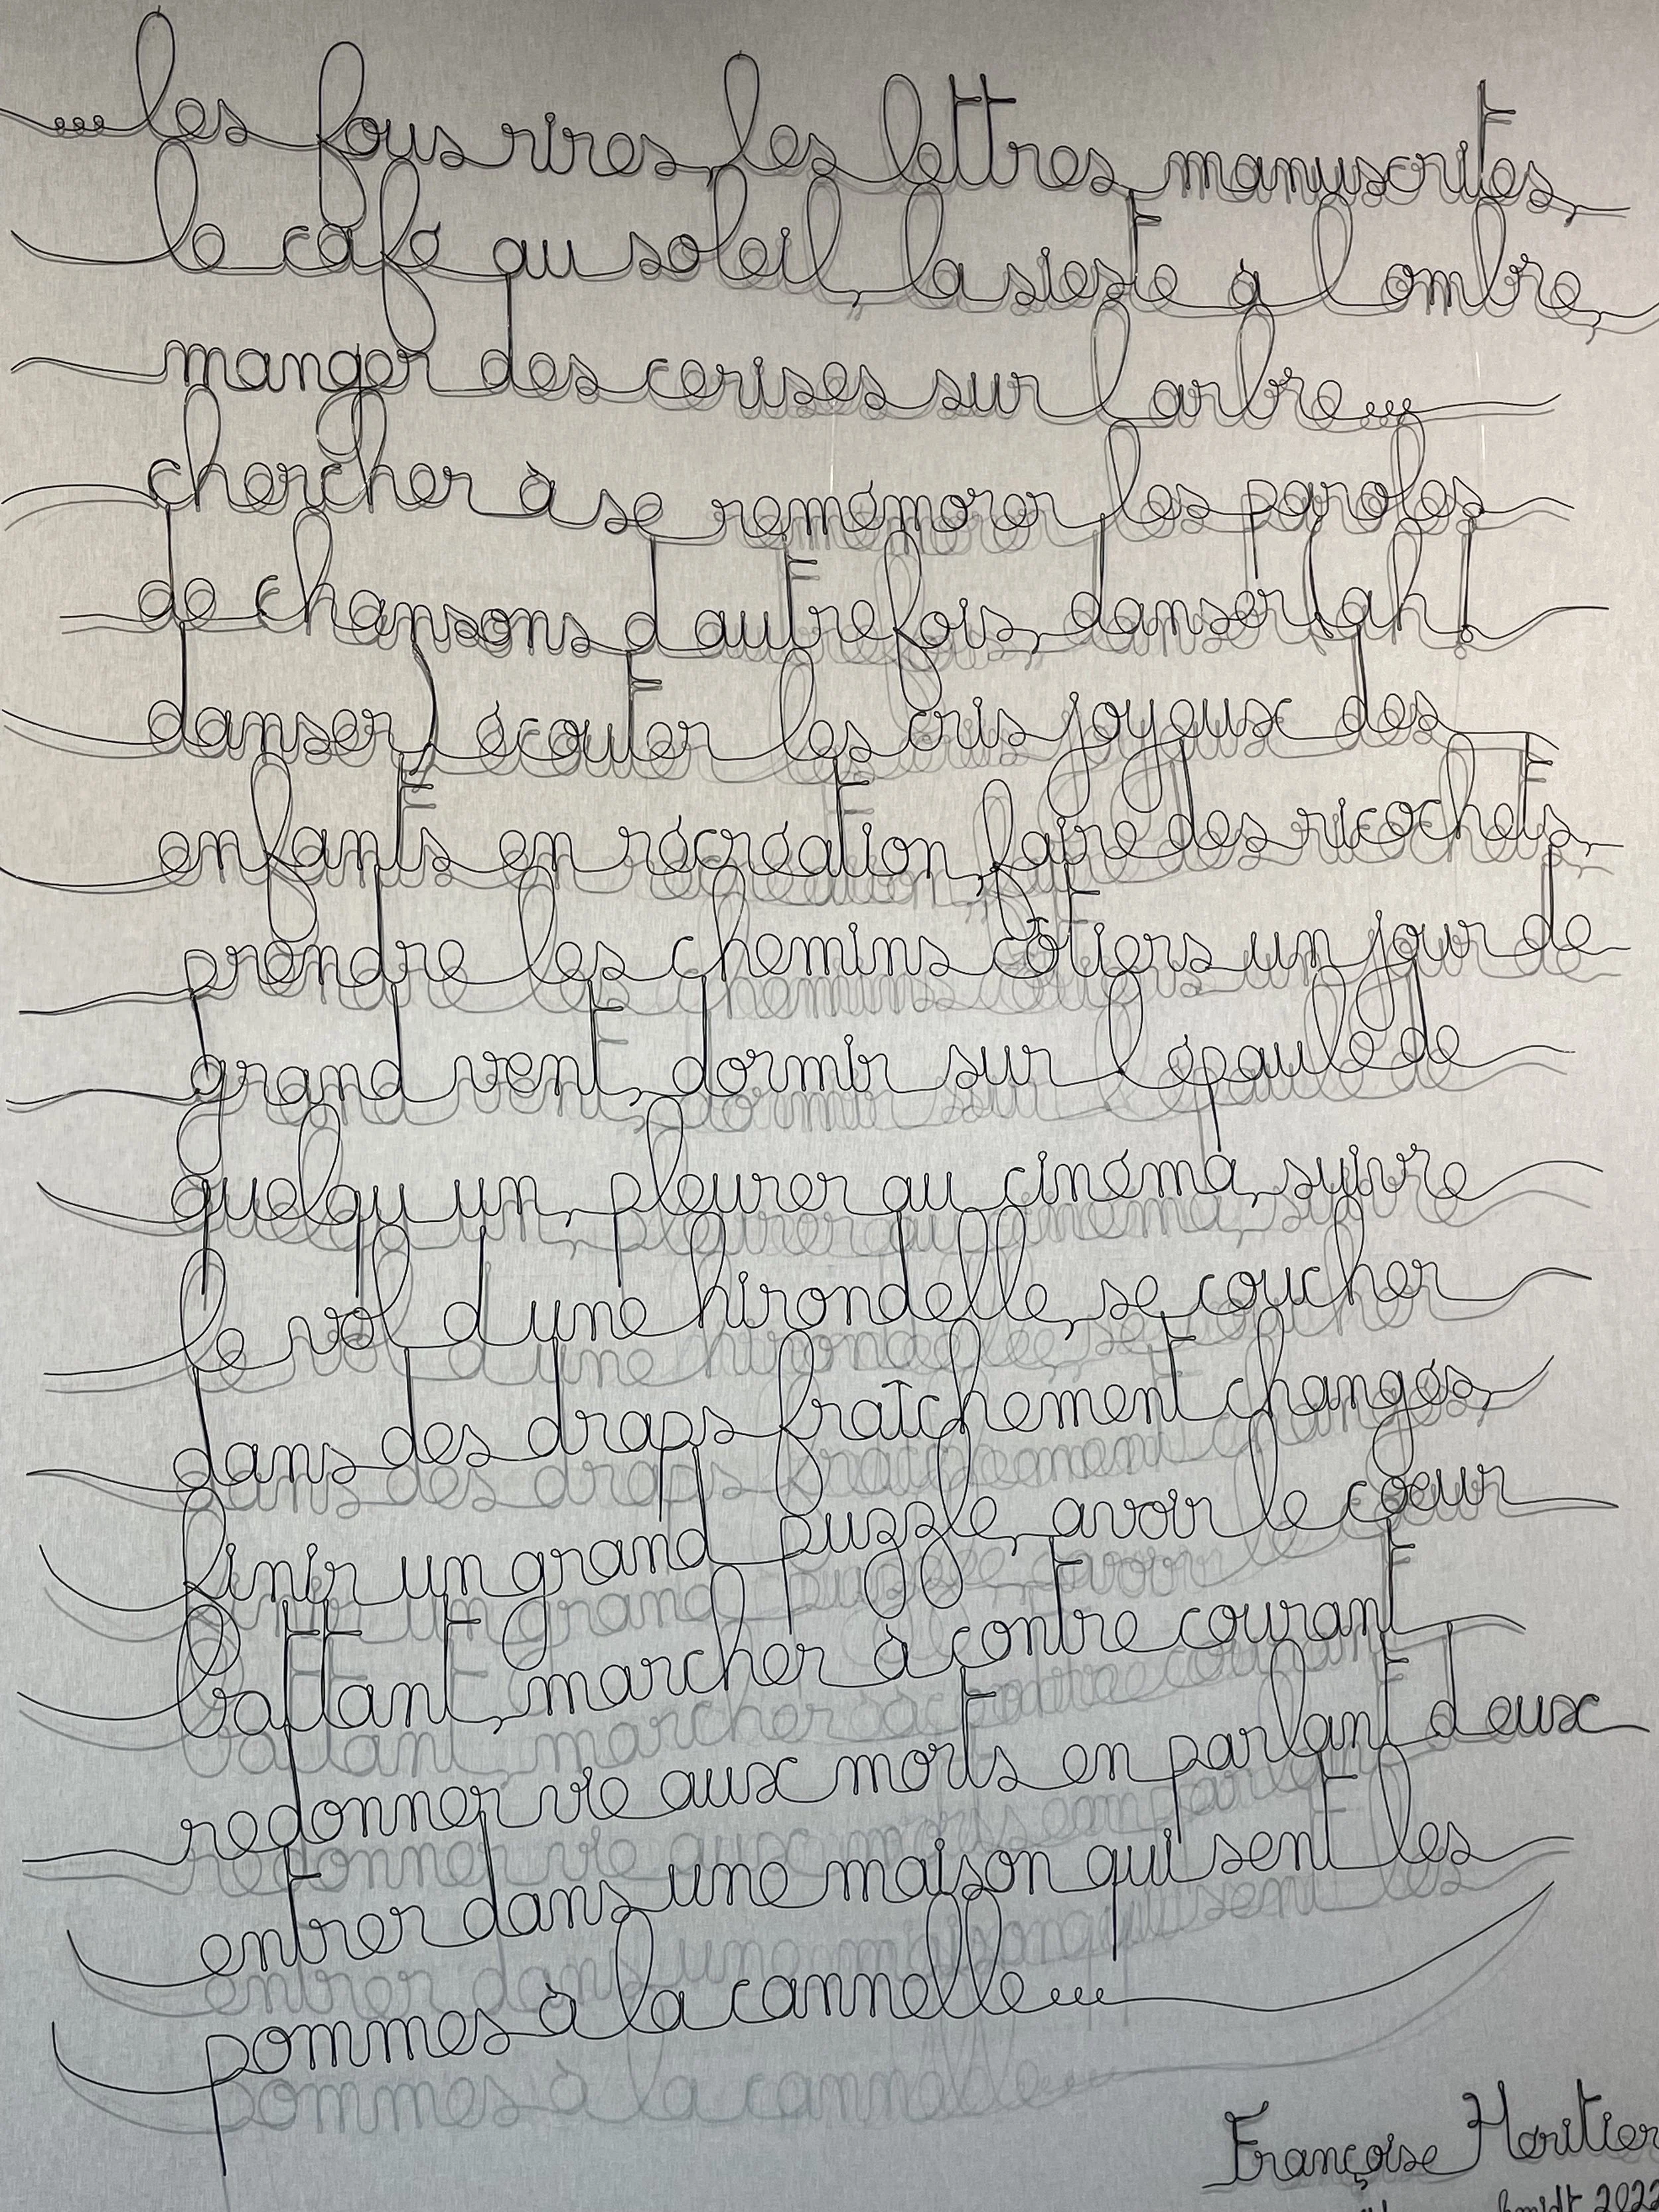 ...les fous rires, les lettres manuscrites,
le café au soleil, la sieste à l ombre,
manger des cerises sur l arbre...
chercher à se remémorer les paroles
de chansons d autrefois, danser (ah!
danser) écouter les cris joyeux des
enfants en récréation, faire des ricochets,
prendre les chemins côtiers un jour de
grand vent, dormir sur l épaule de
quelqu un, pleurer au cinéma, suivre
le vol d une hirondelle, se coucher
dans des draps fraîchement changés,
finir un grand puzzle, avoir le cœur
battant, marcher à contre courant
redonner vie aux morts en parlant d eux
entrer dans une maison qui sent les
pommes à la cannelle...
Françoise Héritier
2022